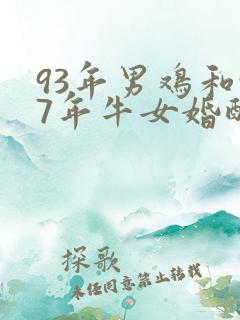 93年男鸡和
7年牛女婚配
探歌
未经同意禁止转载